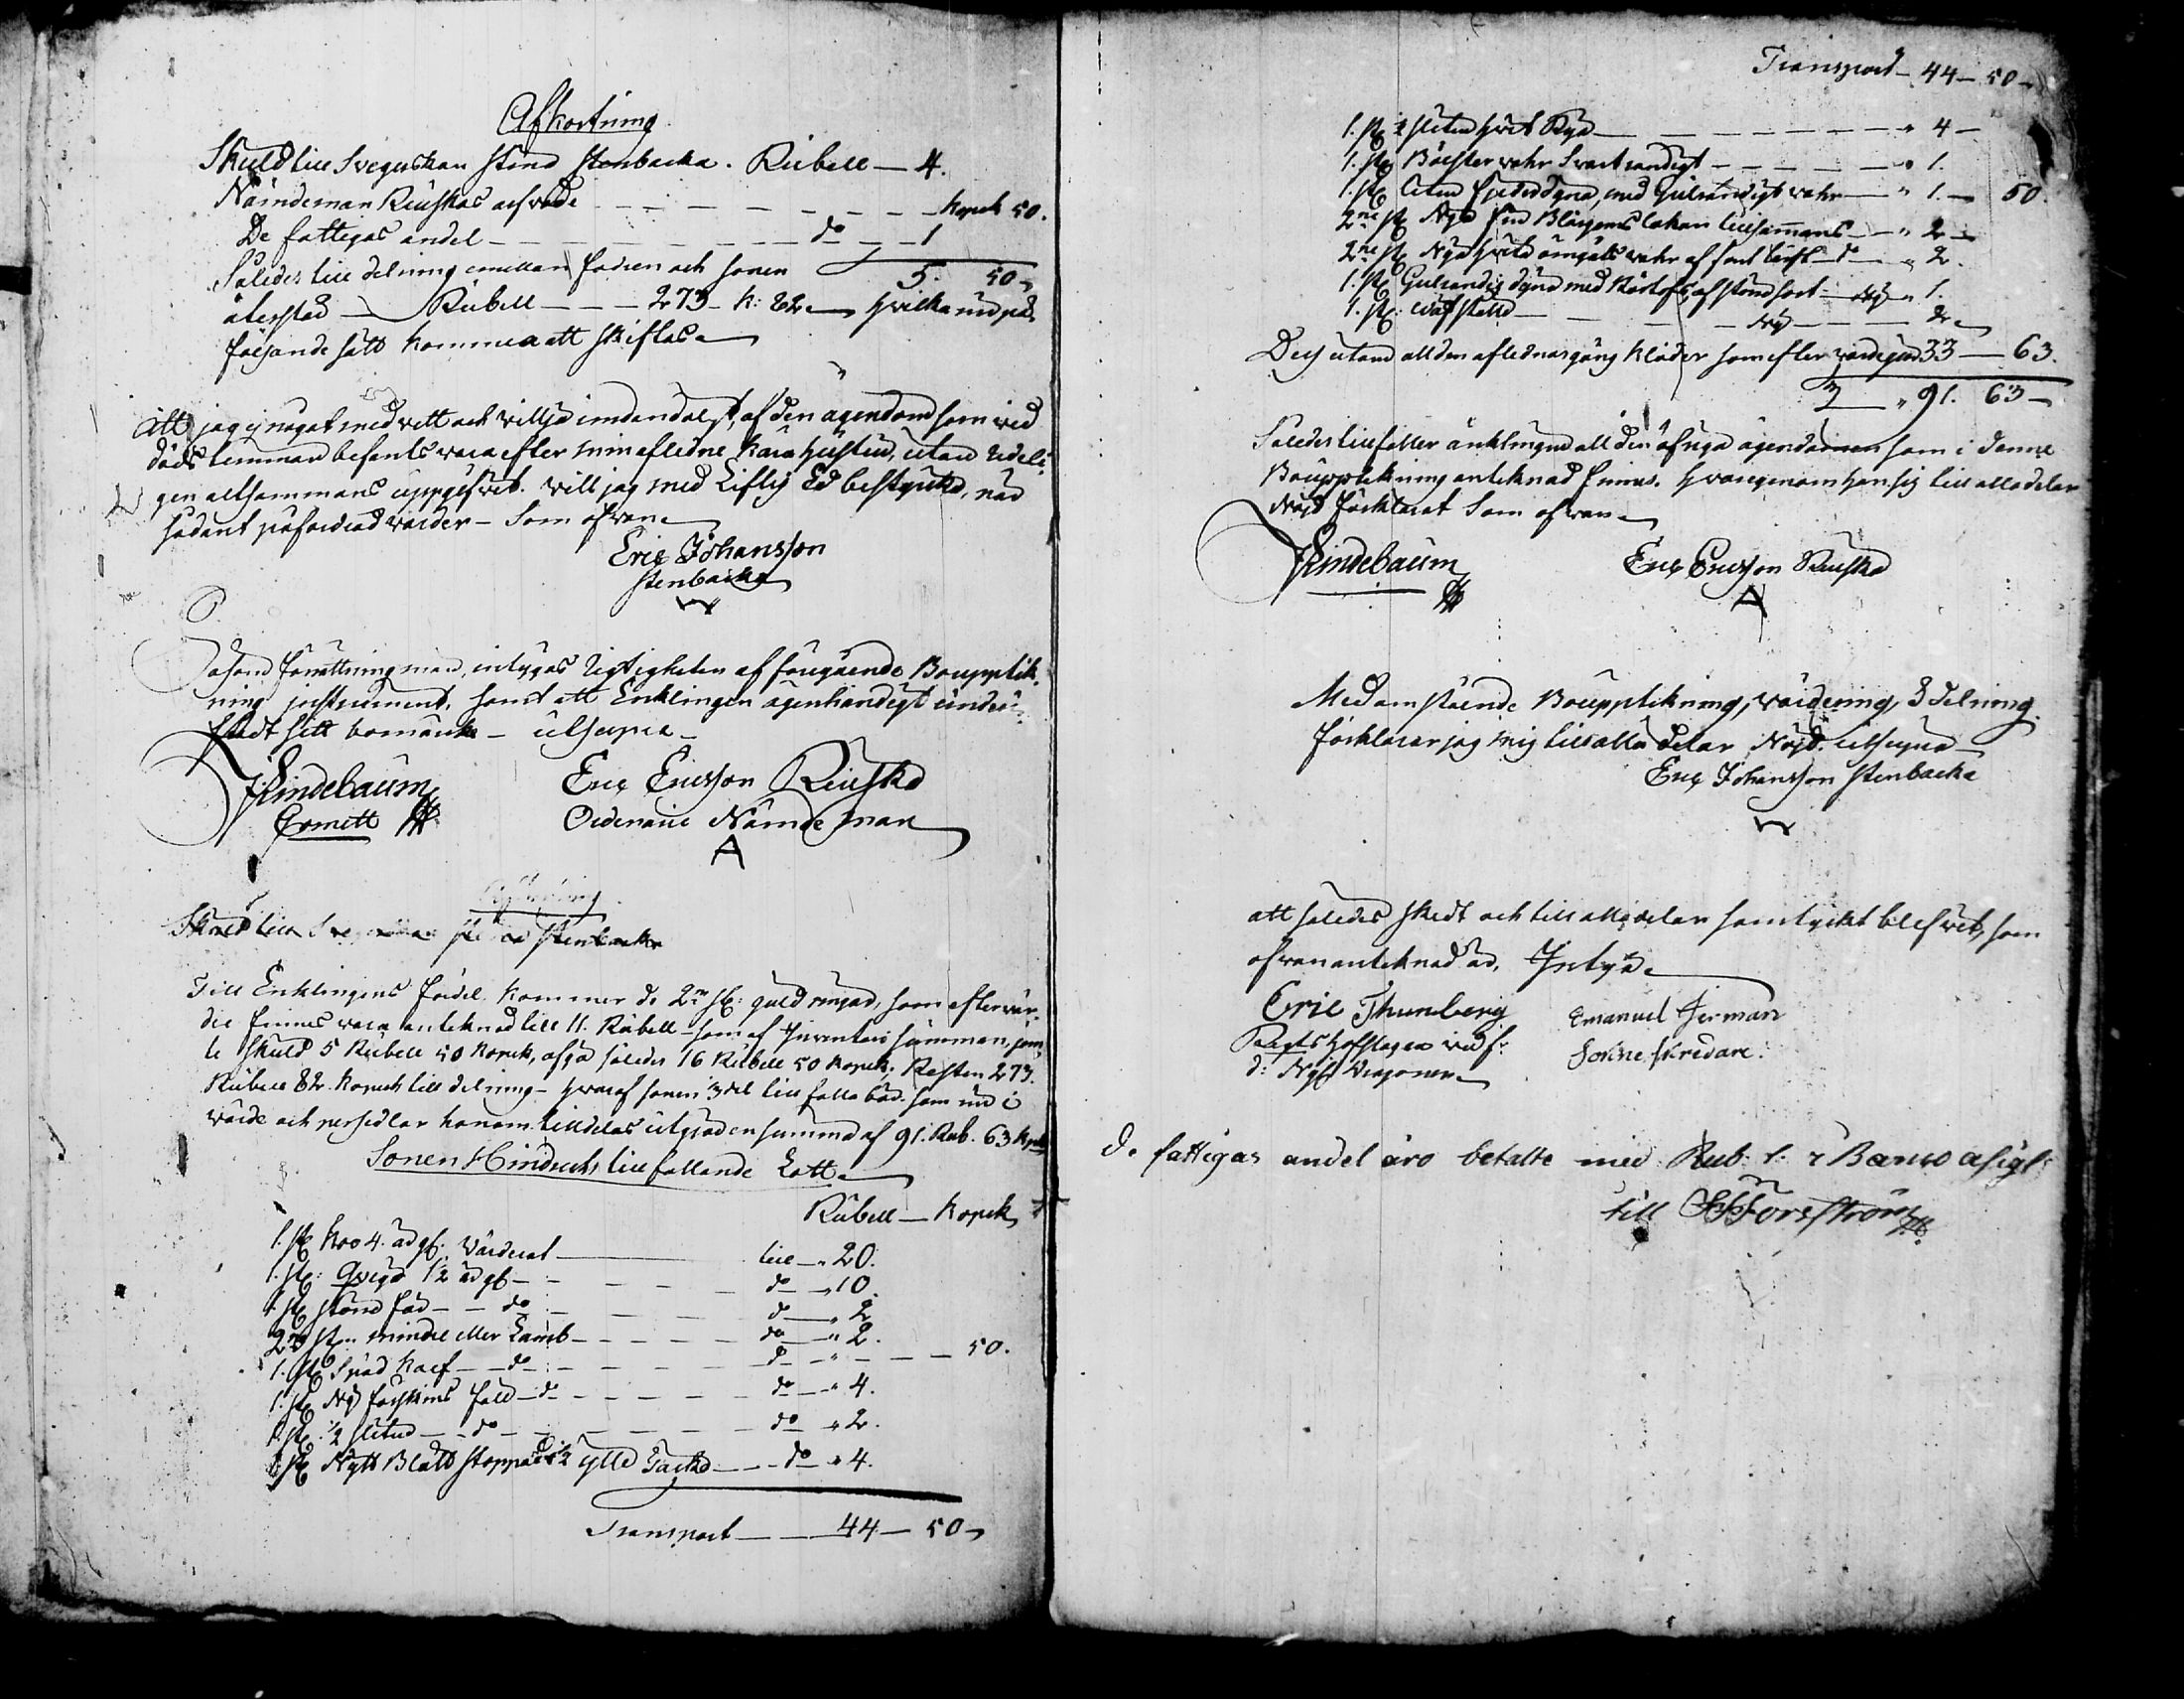 Afkortning
Skuld till Svegerskan Stina Stenbacka. Rubell — 4.
Nämndeman Riuskas arfvode — — — Kopek 50.
De fattigas andel — — — do — 1
Således till delning emellan fadren och sonen 5. 50
återstod — Rubell — — 273 — K: 82 — hvilka nu på
följande sätt kommer att skiftas
Att jag ej något med vett och vilja undandolgt, af den ägendom som vid
dödstimman befants vara efter min aflidne kära hustru, utan redeli-
gen altsammans uppgifvit. Vill jag med Liflig Ed bestyrka, när
sådant påfordrad varder — Som ofvan
Eric Johansson
Stenbacka
Såsom förrättningsmän, intygas rigtigheten af föregående Boupptek-
ning instrument, samt att Enklingen ägenhändigt under-
stådt sitt bomärke — utsupra —
Lindebaum
Eric Ericsson Riuska
Ordinarie Nämndeman
Skuld till Stenbacka
Till Enklingens fördel kommer de 2ne st: guld ringar, som efter vär-
die finnes vara anteknad till 11. Rubell — som af Inventarii summan, jem-
te skuld 5 Rubell 50 Kopek, afgå således 16 Rubell 50 Kopek; Resten 273.
Rubell 82. Kopek till delning — hvaraf sonen 1/3del tillfalla bör. som nu i
värde och persedlar honom tilldelas utgörad en summa af 91. Rub. 63 Kopek
Sonen Hindrichs tillfallande Lott
Rubell — Kopek
1. st Koo 4. år gl. Värderat — till — " 20.
1. st: Qviga 1/2 år gl — — do — " 10.
1. st större får — do — — do — " 2
2ne st: mindre eller Lamb — — do — " 2.
1. st Spad Karf — do — — do — " — — 50.
1. st Ny fårskins fäll — do — — do — " 4.
1. st: 1/2 slitna — do — — do " 2.
1. st Nytt Blått stoppadt 1/2 ylle Täcke — — do " 4.
Transport — — 44 — 50
Transport — 44 — 50
1. st 1/2 sliten hvit Rya — — — " 4 —
1. st Bolster vahr Svartrandigt — — — " 1.
1. st liten fjederdyna, med Gulrandigt vahr — " 1. — 50.
2ne st Nya fina Blårgarns lakan tillsammans — " 2 —
2ne st Nya hvita örngåtts vahr af samt lärft — do — " 2.
1. st Gulrandig dyna med af större sort — ny — " 1.
1. st: Väfstolla — — — ny — — 2
Dess utom all den aflednas gång kläder som efter värdie gör 33 — 63.
" 91. 63 —
Således tillfaller änklingen all den öfriga ägendomen som i denne
Bouppteckning anteknad finnes. hvarigenom han sig till alla delar
Nöjd förklarat Som ofvan
Lindebaum
Eric Ericsson Riuska
Med omstående Bouppteckning, värdering, & delning
förklarar jag mig till alla delar Nöjd. utsupra —
Eric Johansson Stenbacka
att således skedt och till alla delar samtyckt blifvit, som
ofvan anteknad är, Intyga
Eric Thunberg
Emanuel German
hofslagare vid f:
Sokne skredare.
d: Nyl: Dragoner
De fattigas andel äro betalte med Rub: 1. i Banco asigl:
till Forsström